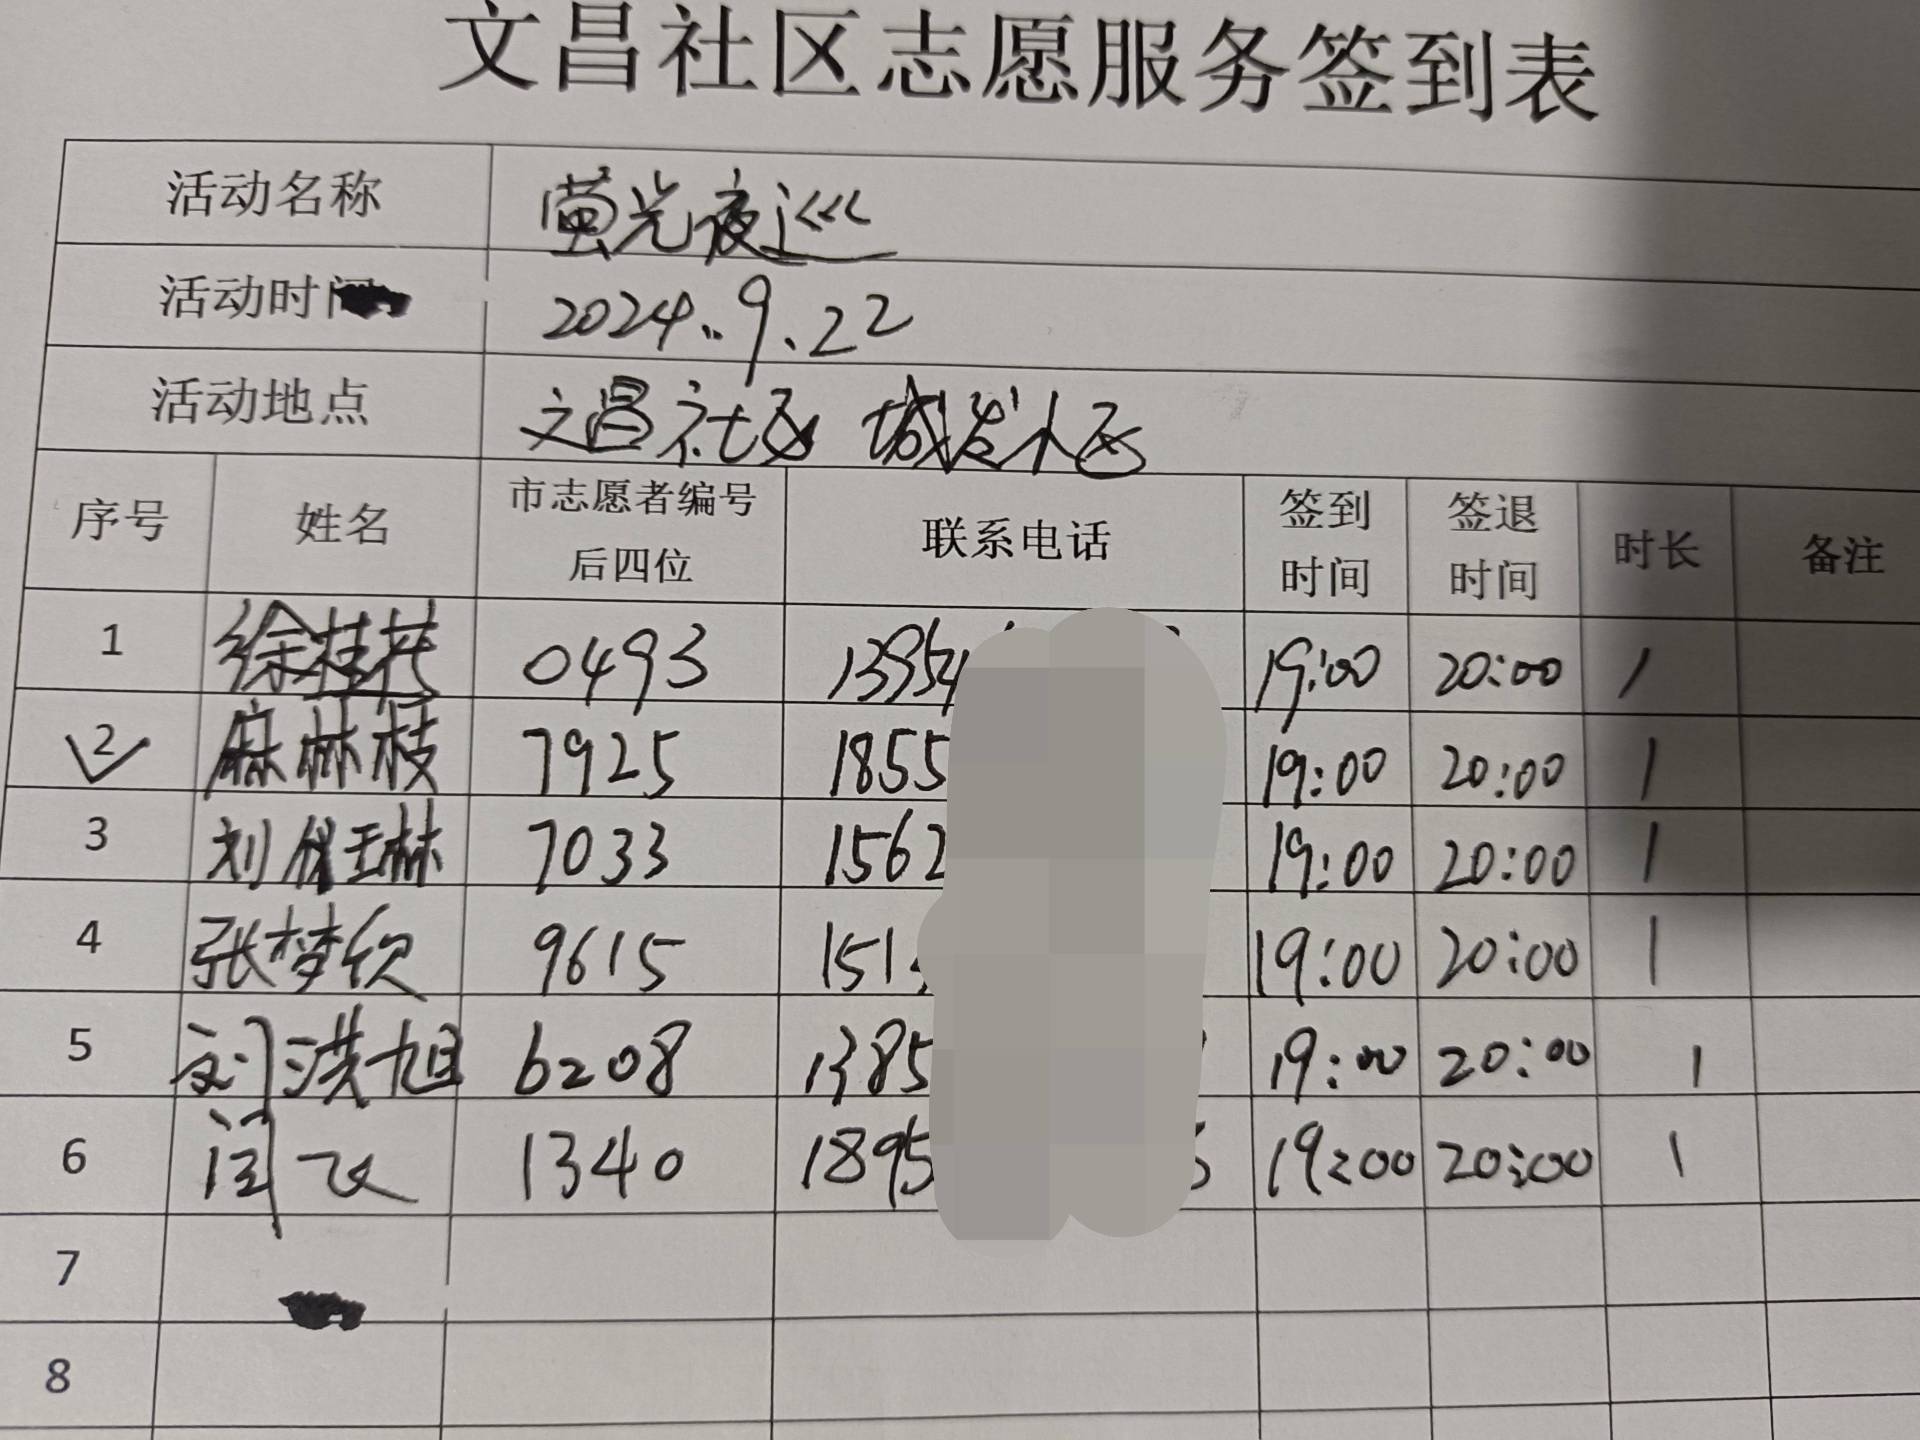 文昌社区志愿服务签到表
活动名称 萤光夜巡
活动时间 2024.9.22
活动地点 文昌社区 城发小区
序号 姓名 市志愿者编号后四位 联系电话 签到时间 签退时间 时长 备注
1 徐桂花 0493 1395 19:00 20:00 1
2 麻林枝 7925 1855 19:00 20:00 1
3 刘 林 7033 1562 19:00 20:00 1
4 张梦欣 9615 151 19:00 20:00 1
5 刘洪旭 6208 1385 19:00 20:00 1
6 闫飞 1340 1895 19:00 20:00 1
7
8